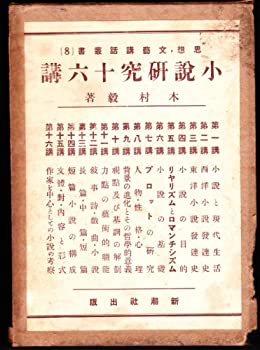 思想・文藝講話叢書〔8〕
小說研究十六講
木村毅著
第一講 小說と現代生活
第二講 西洋小說發達史
第三講 東洋小說發達史
第四講 小說の目的
第五講 リヤリズムとロマンチシズム
第六講 小說の基礎
第七講 プロットの研究
第八講 人物・性格・心理
第九講 背景の進化とその哲學的意義
第十講 視點及び基調の解剖
第十一講 力點の藝術的職能
第十二講 敍事詩・戲曲・小說
第十三講 長篇・中篇・短篇
第十四講 短篇小說の構成
第十五講 文體・對・內容と形式
第十六講 作家を中心としての小說の考察
新潮社出版